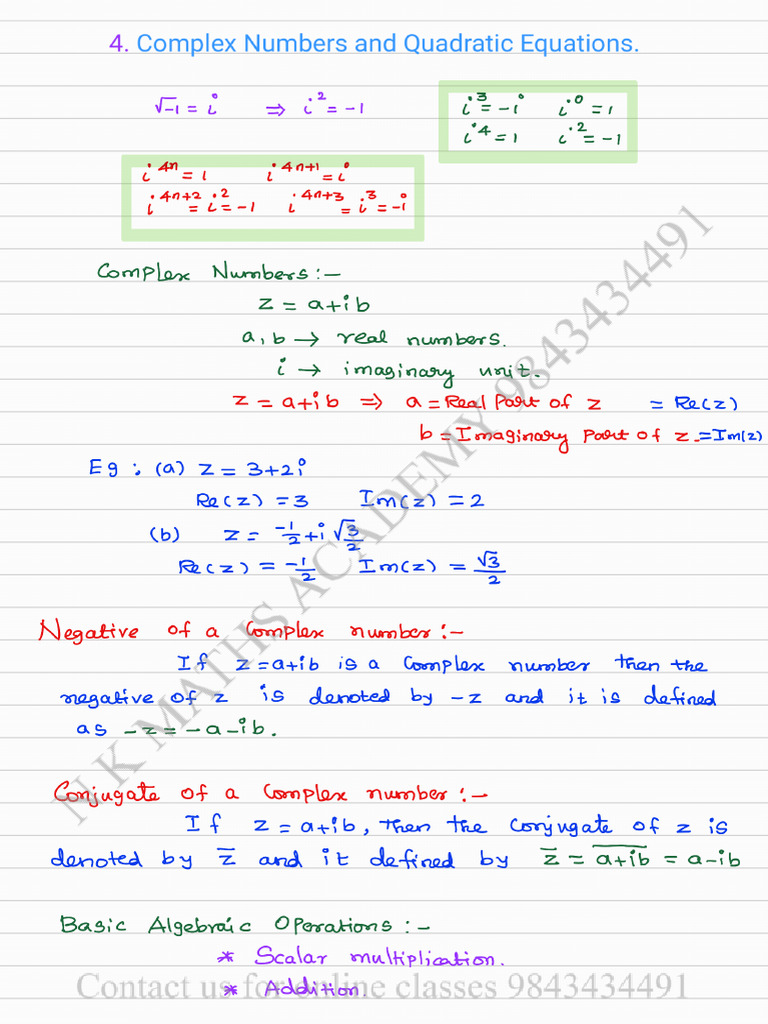 4. Complex Numbers and Quadratic Equations.
√-1 = i ⇒ i² = -1
i³ = -i i⁰ = 1
i⁴ = 1 i² = -1
i⁴ⁿ = 1 i⁴ⁿ⁺¹ = i
i⁴ⁿ⁺² = i² = -1 i⁴ⁿ⁺³ = i³ = -i
Complex Numbers:-
z = a+ib
a, b → real numbers.
i → imaginary unit.
z = a+ib ⇒ a = Real Part of z = Re(z)
b = Imaginary Part of z. = Im(z)
Eg : (a) z = 3+2i
Re(z) = 3 Im(z) = 2
(b) z = -1/2 + i √3/2
Re(z) = -1/2 Im(z) = √3/2
Negative of a complex number:-
If z = a+ib is a complex number then the
negative of z is denoted by -z and it is defined
as -z = -a-ib.
Conjugate of a complex number:-
If z = a+ib, then the conjugate of z is
denoted by z̅ and it defined by z̅ = a̅+̅i̅b̅ = a-ib
Basic Algebraic Operations:-
* Scalar multiplication.
* Addition.
N.K MATHS ACADEMY 9843434491
Contact us for online classes 9843434491